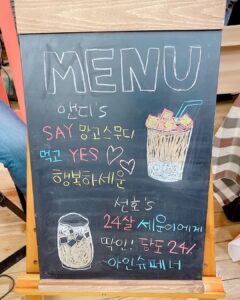 MENU
앤디's
SAY 망고스무디
먹고 YES
행복하세운
선호's
24살 세운이에게
딱인! 당도 24%
아인슈페너